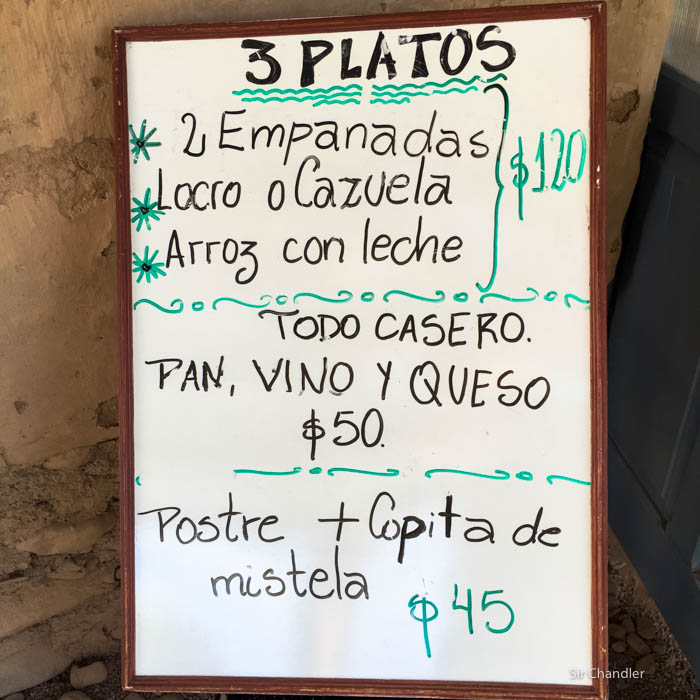 3 PLATOS
2 Empanadas
Locro o Cazuela
Arroz con leche
$120
TODO CASERO.
PAN, VINO Y QUESO
$50.
Postre + Copita de
mistela
$45
Sir Chandler